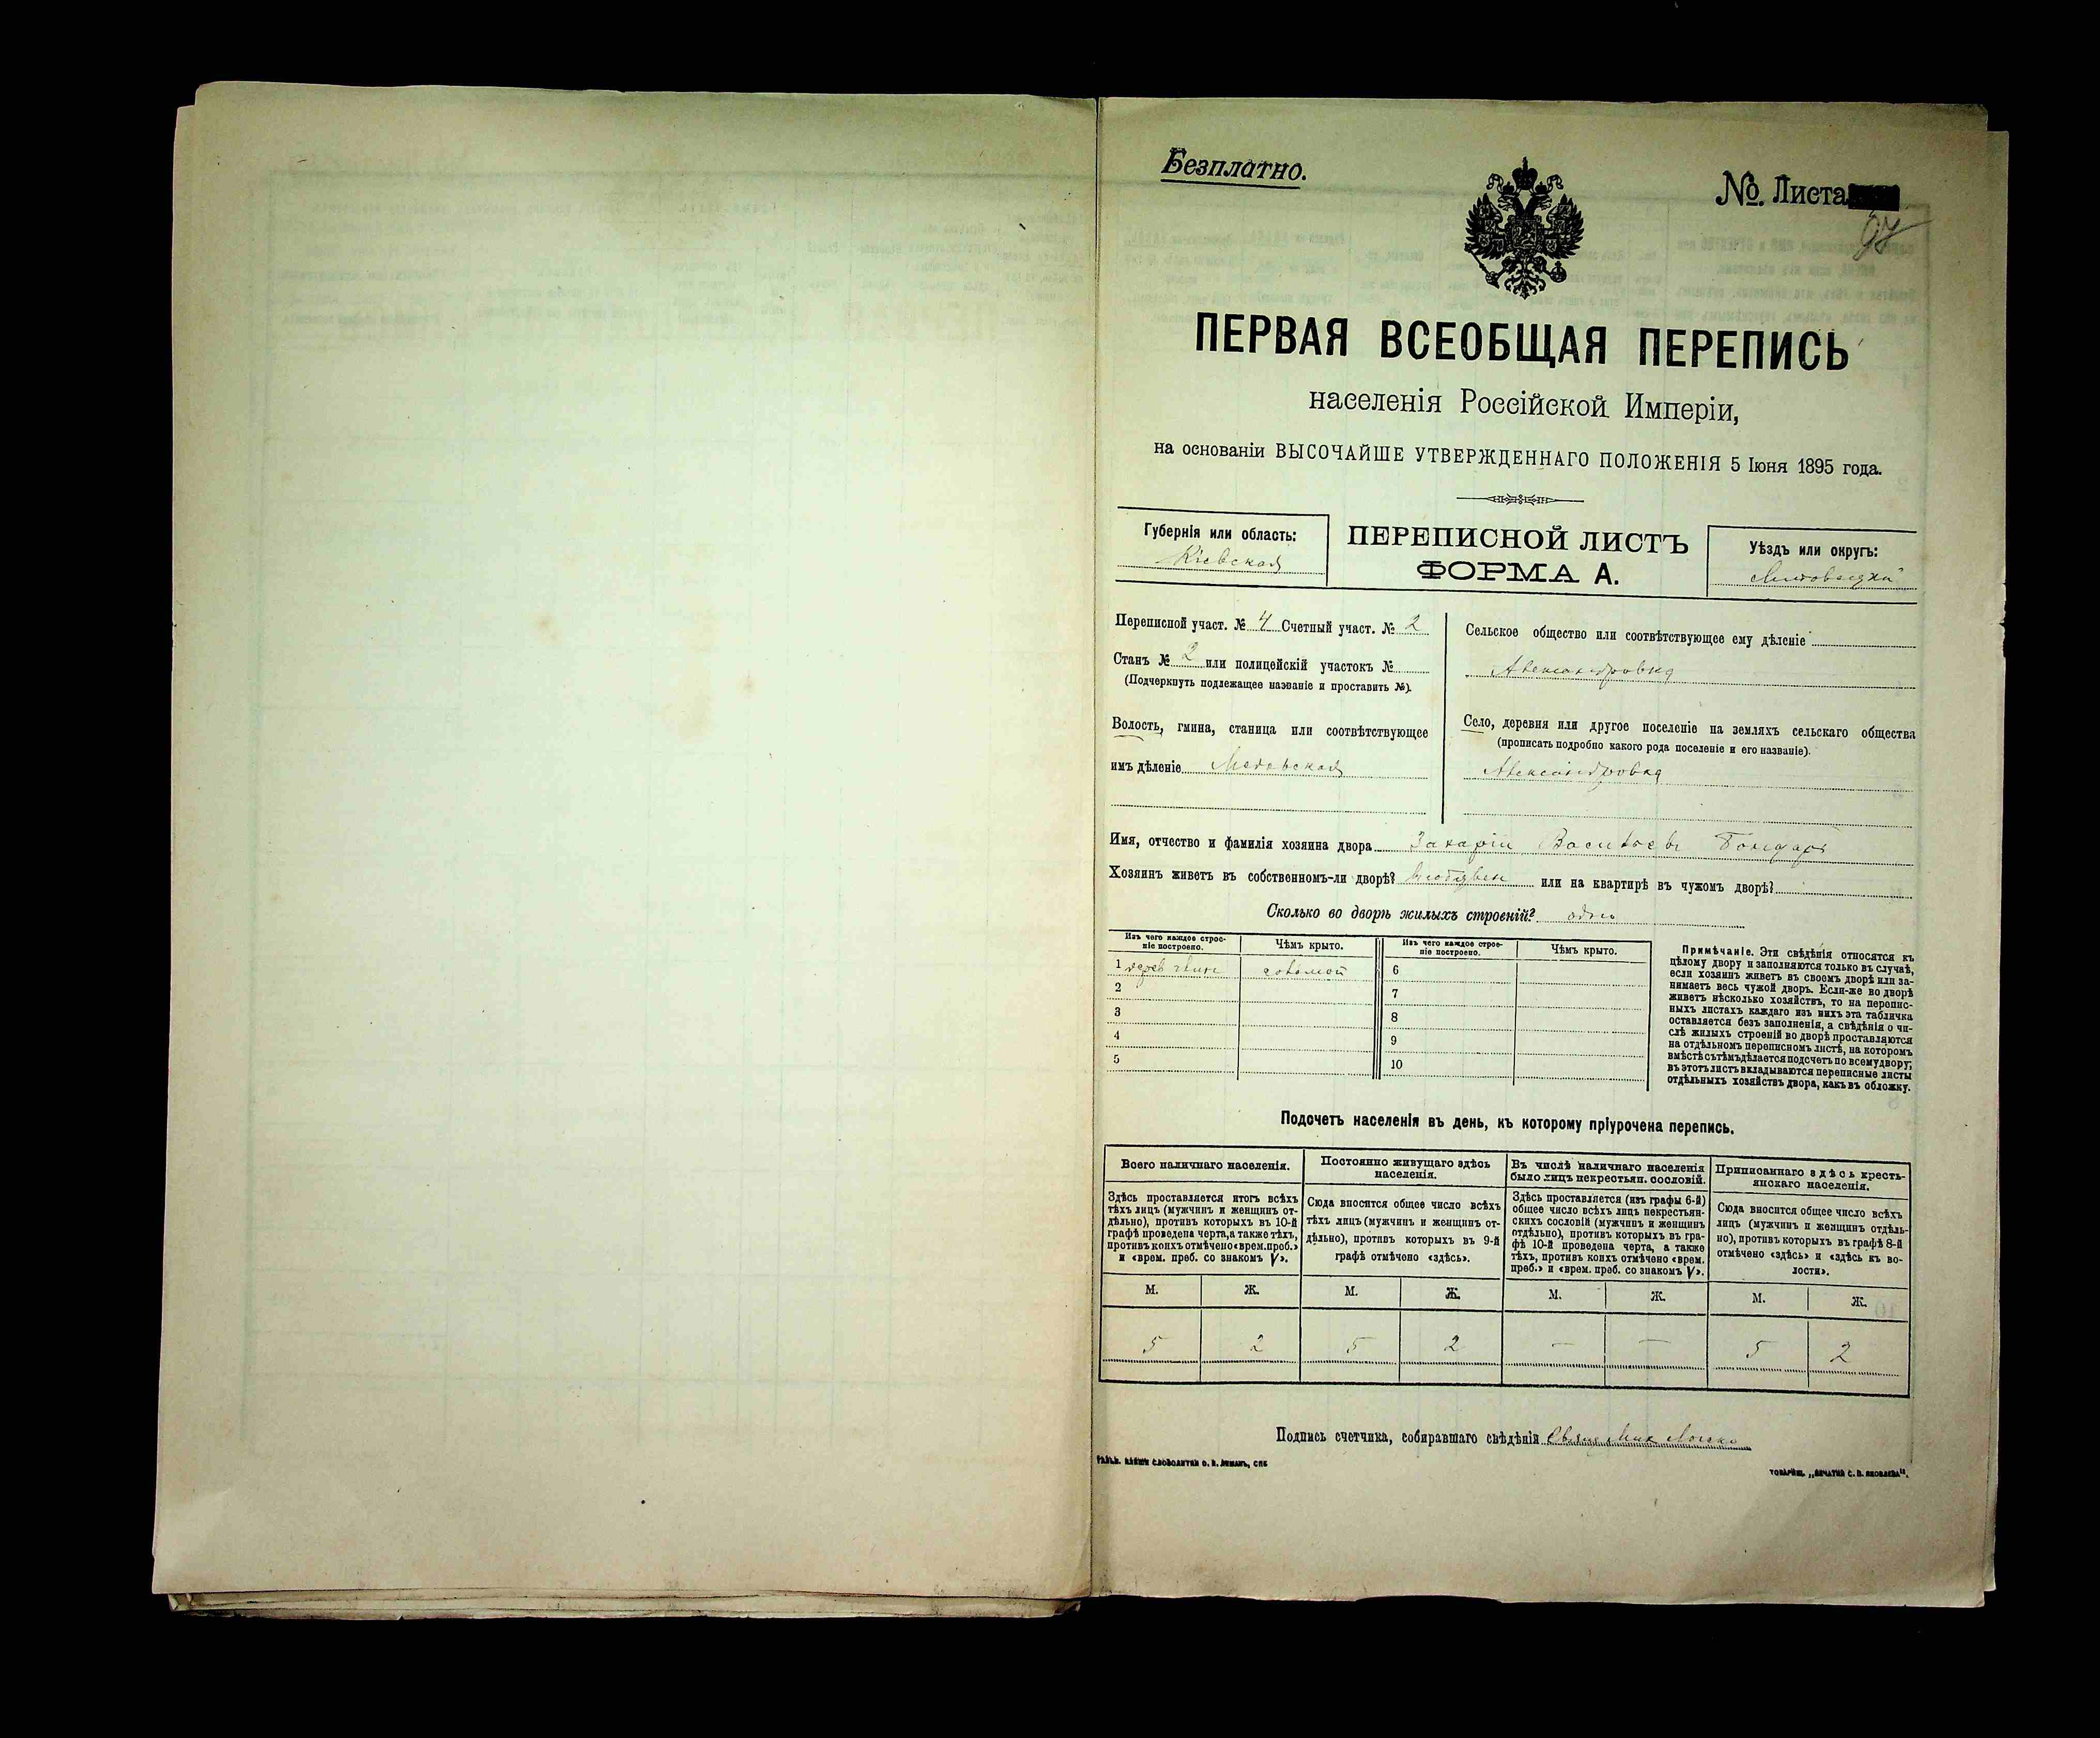 Безплатно.
№. Листа
97
ПЕРВАЯ ВСЕОБЩАЯ ПЕРЕПИСЬ
населенія Россійской Имперіи,
на основаніи ВЫСОЧАЙШЕ УТВЕРЖДЕННАГО ПОЛОЖЕНІЯ 5 Іюня 1895 года.
Губернія или область:
Кіевская
ПЕРЕПИСНОЙ ЛИСТЪ
ФОРМА А.
Уѣздъ или округъ:
Липовецкій
Переписной участ. № 4 Счетный участ. № 2
Станъ № 2 или полицейскій участокъ №
(Подчеркнуть подлежащее названіе и проставить №).
Волость, гмина, станица или соотвѣтствующее
имъ дѣленіе
Сельское общество или соотвѣтствующее ему дѣленіе
Александровка
Село, деревня или другое поселеніе на земляхъ сельскаго общества
(прописать подробно какого рода поселеніе и его названіе).
Александровка
Имя, отчество и фамилія хозяина двора Захарій Васильевъ Бондарь
Хозяинъ живетъ въ собственномъ-ли дворѣ? или на квартирѣ въ чужомъ дворѣ?
Сколько во дворѣ жилыхъ строеній? одно
Изъ чего каждое строе-
ніе построено.
Чѣмъ крыто.
Изъ чего каждое строе-
ніе построено.
Чѣмъ крыто.
1 соломой 6
2 7
3 8
4 9
5 10
Примѣчаніе. Эти свѣдѣнія относятся къ
цѣлому двору и заполняются только въ случаѣ,
если хозяинъ живетъ въ своемъ дворѣ или за-
нимаетъ весь чужой дворъ. Если-же во дворѣ
живетъ нѣсколько хозяйствъ, то на перепис-
ныхъ листахъ каждаго изъ нихъ эта табличка
оставляется безъ заполненія, а свѣдѣнія о чи-
слѣ жилыхъ строеній во дворѣ проставляются
на отдѣльномъ переписномъ листѣ, на которомъ
вмѣстѣ съ тѣмъ дѣлается подсчетъ по всему двору;
въ этотъ листъ вкладываются переписные листы
отдѣльныхъ хозяйствъ двора, какъ въ обложку.
Подсчетъ населенія въ день, къ которому пріурочена перепись.
Всего наличнаго населенія.
Здѣсь проставляется итогъ всѣхъ
тѣхъ лицъ (мужчинъ и женщинъ от-
дѣльно), противъ которыхъ въ 10-й
графѣ проведена черта, а также тѣхъ,
противъ коихъ отмѣчено «врем. преб.»
и «врем. преб. со знакомъ V».
Постоянно живущаго здѣсь
населенія.
Сюда вносится общее число всѣхъ
тѣхъ лицъ (мужчинъ и женщинъ от-
дѣльно), противъ которыхъ въ 9-й
графѣ отмѣчено «здѣсь».
Въ числѣ наличнаго населенія
было лицъ некрестьян. сословій.
Здѣсь проставляется (изъ графы 6-й)
общее число всѣхъ лицъ некрестьян-
скихъ сословій (мужчинъ и женщинъ
отдѣльно), противъ которыхъ въ гра-
фѣ 10-й проведена черта, а также
тѣхъ, противъ коихъ отмѣчено «врем.
преб.» и «врем. преб. со знакомъ V».
Приписаннаго здѣсь кресть-
янскаго населенія.
Сюда вносится общее число всѣхъ
лицъ (мужчинъ и женщинъ отдѣль-
но), противъ которыхъ въ графѣ 8-й
отмѣчено «здѣсь» и «здѣсь къ во-
лости».
М. Ж. М. Ж. М. Ж. М. Ж.
5 2 5 2 — — 5 2
Подпись счетчика, собиравшаго свѣдѣнія
ТОВАРИЩ. „ПЕЧАТНЯ С. П. ЯКОВЛЕВА".